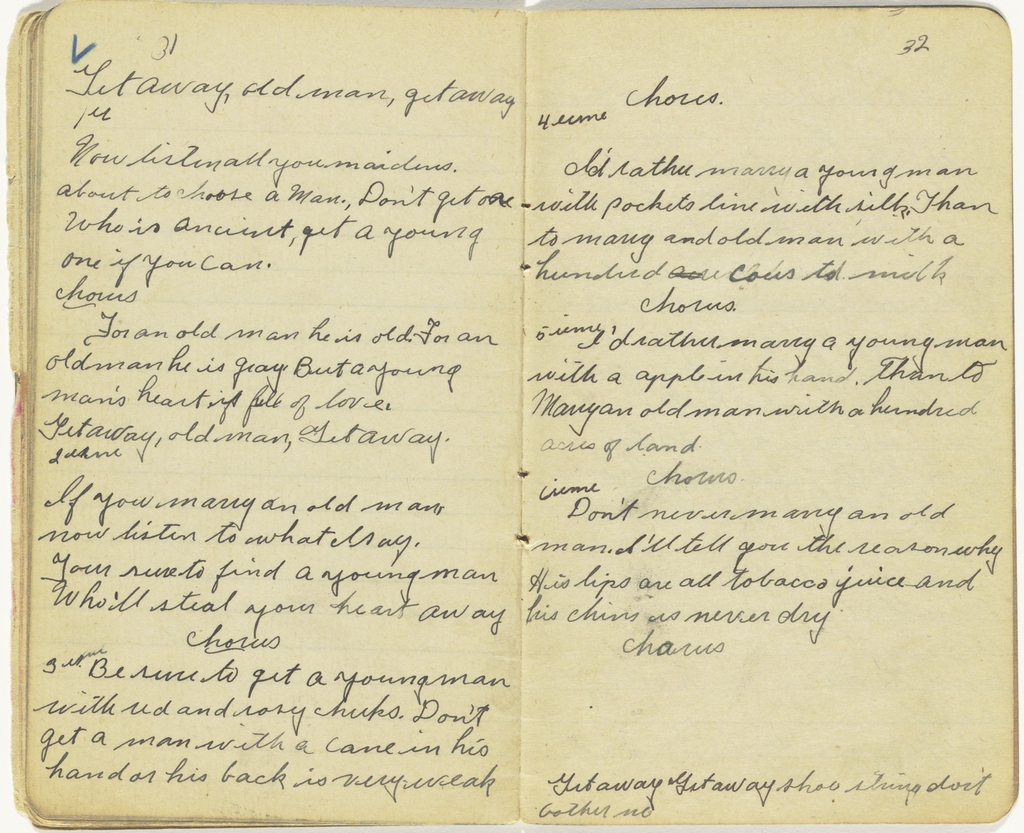 31
Get away, old man, get away
1er
Now listen all you maidens.
about to choose a Man., Don't get one
Who is ancient, get a young
one if you can.
Chorus
For an old man he is old. For an
old man he is gray. But a young
man's heart is full of love.
Get away, old man, Get away.
2ieme
If you marry an old man
now listen to what I say.
Your sure to find a young man
Who'll steal your heart away
Chorus
3ieme Be sure to get a young man
with red and rosy cheeks. Don't
get a man with a cane in his
hand or his back is very weak
32
Chorus.
4ieme
I'd rather marry a young man
with pockets line with silk, Than
to marry and old man with a
hundred cows to milk
Chorus.
5ieme I'd rather marry a young man
with a apple in his hand. Than to
Marry an old man with a hundred
acres of land.
Chorus.
ieme
Don't never marry an old
man. I'll tell you the reason why
His lips are all tobacco juice and
his chins is never dry.
Chorus
Get away Get away shoo string don't
bother me